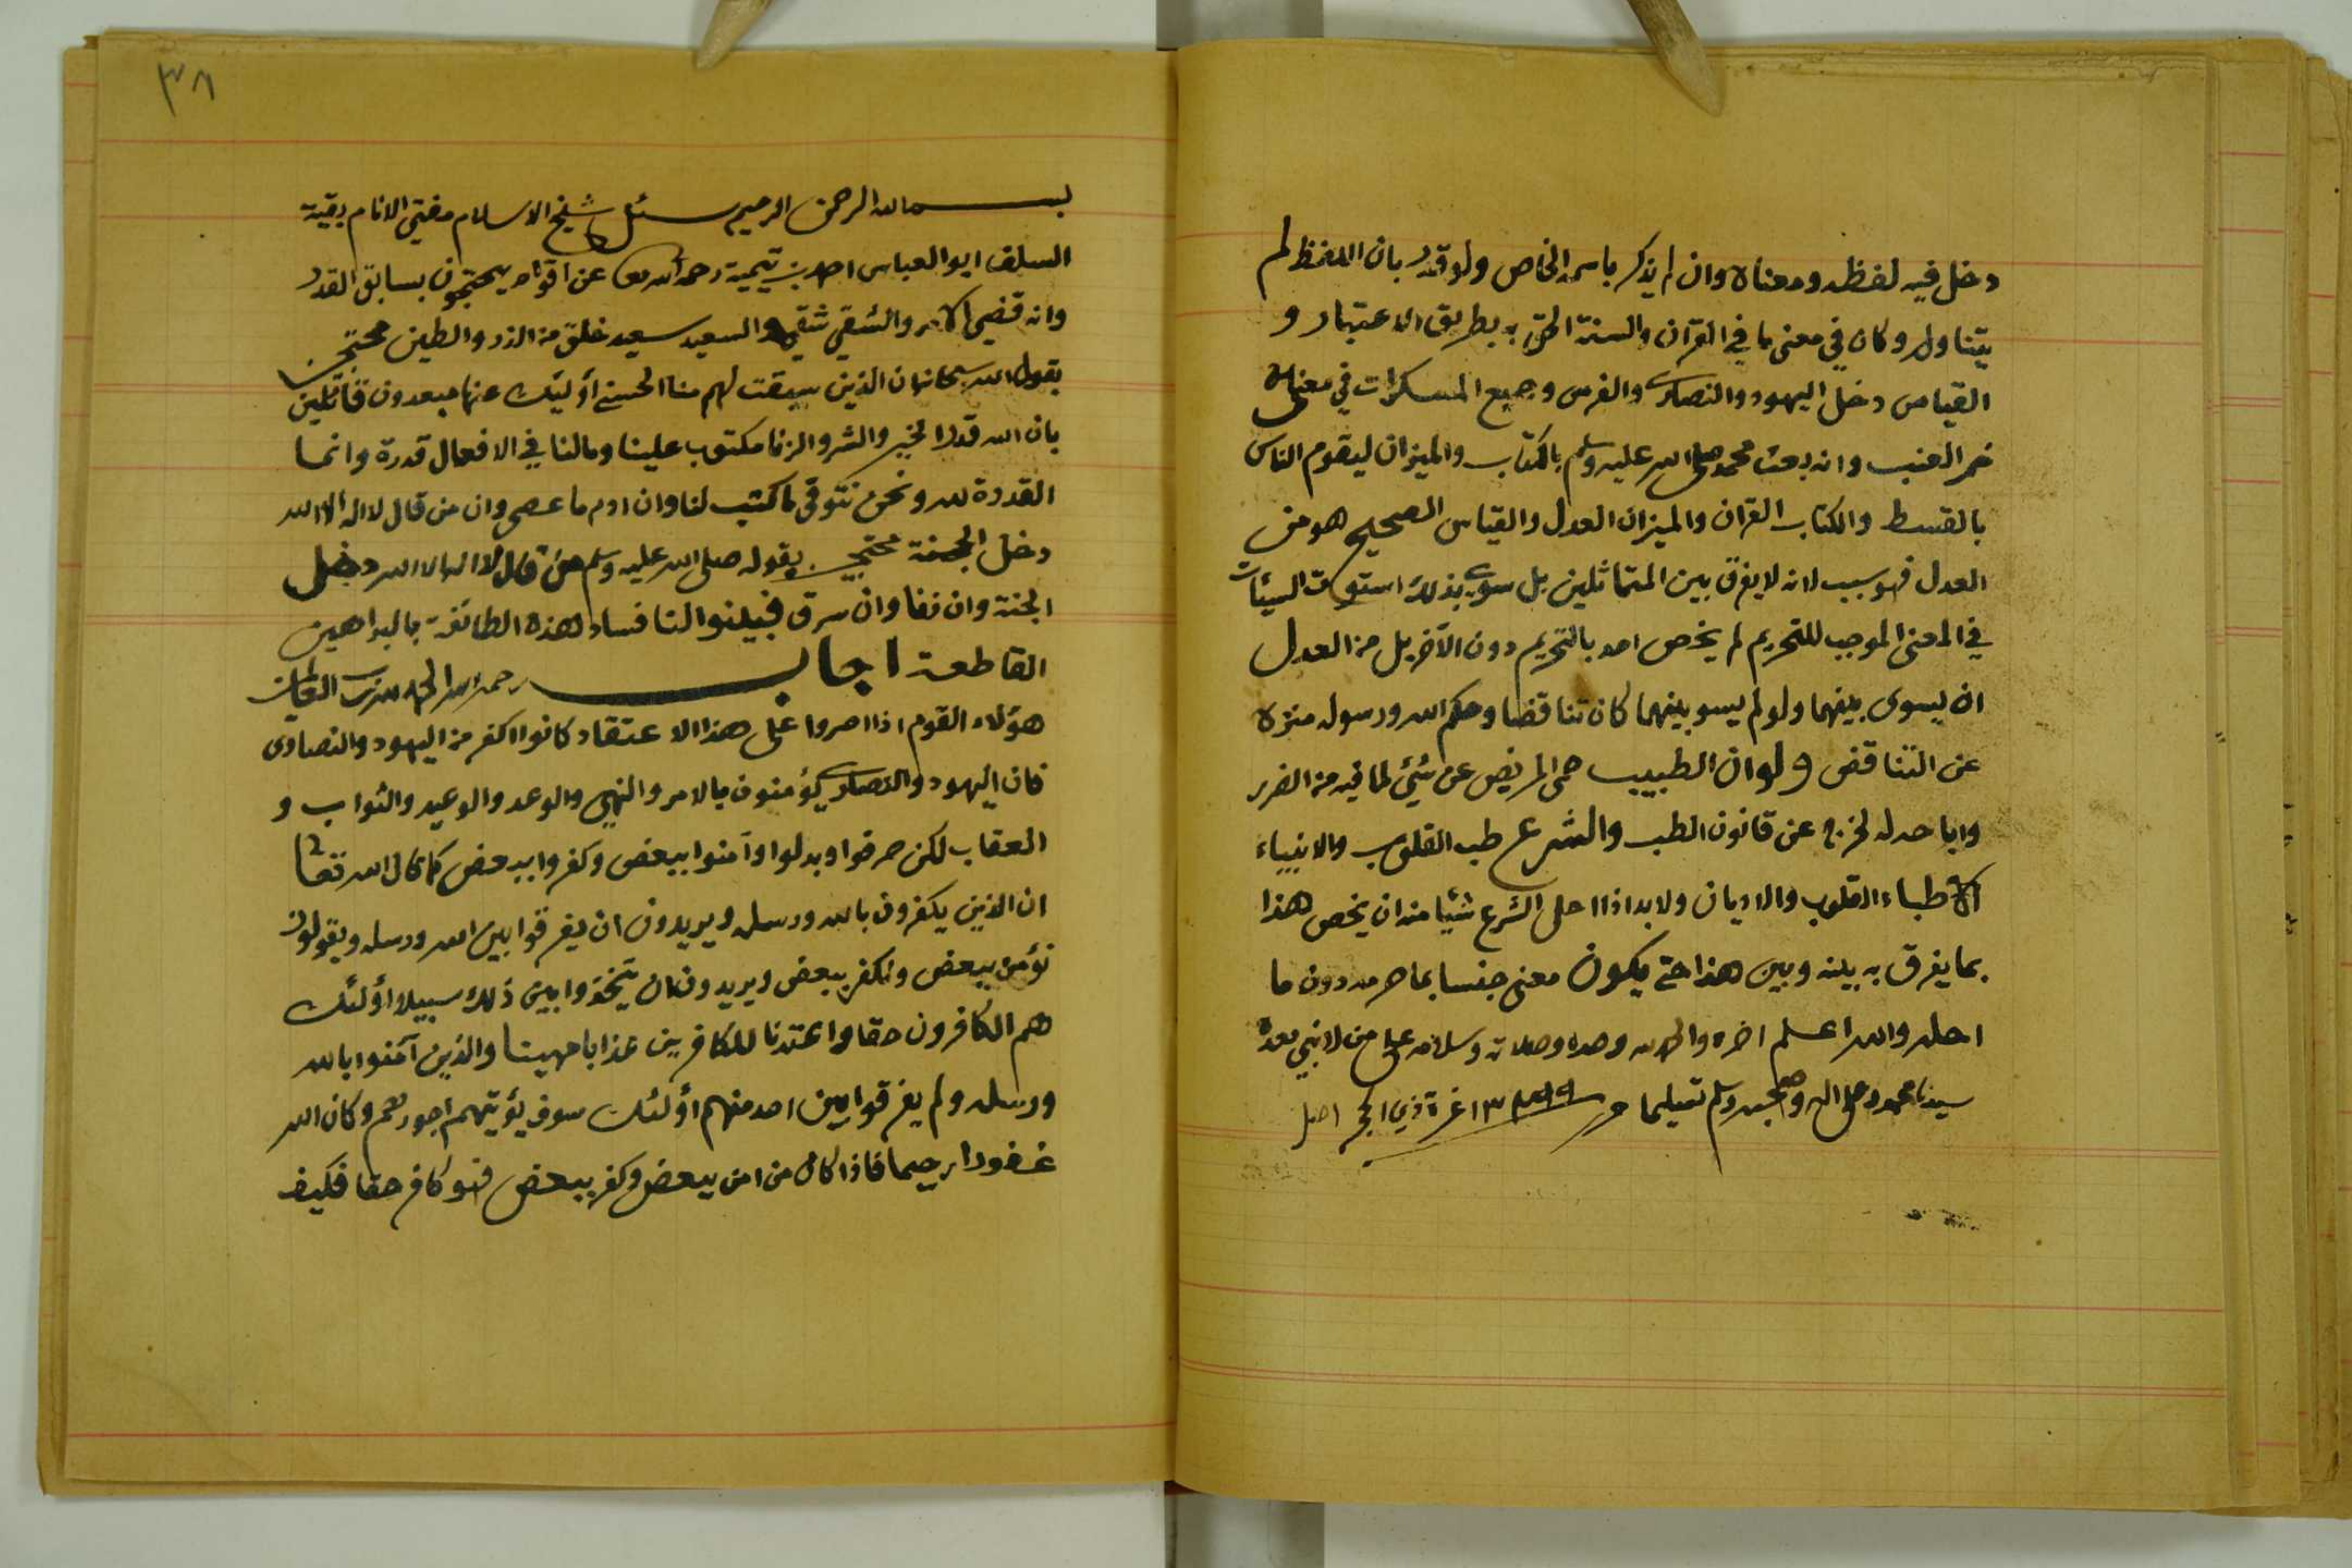 دخل فيه لفظه ومعناه وان لم يذكر باسمه الخاص ولو قدر بان اللفظ لم
يتناوله وكان في معنى ما في القرآن والسنة الحق به بطريق الاعتبار و
القياس دخل اليهود والنصارى والفرس وجميع المسكرات في معناه
خمر العنب وانه بعث محمد صلى الله عليه وسلم بالكتاب والميزان ليقوم الناس
بالقسط والكتاب القران والميزان العدل والقياس الصحيح هو من
العدل فهو سبب لانه لا يفرق بين المتماثلين بل سوى بذلك استوت السيئات
في المعنى الموجب للتحريم لم يخص احد بالتحريم دون الآخر بل من العدل
ان يسوى بينهما ولو لم يسو بينهما كان تناقضا وحكم الله ورسوله منزه
عن التناقض ولو ان الطبيب حمى المريض عن شيئ لما فيه من الضرر
واباحه له لخرج عن قانون الطب والشرع طب القلوب والانبياء
الاطباء القلوب والاديان ولا بد اذا احل الشرع شيئا منه ان يخص هذا
بما يفرق به بينه وبين هذا حتى يكون معنى جنسا بما حرمه دون ما
احله والله اعلم اخره والحمد لله وحده وصلاته وسلامه على من لا نبي بعده
سيدنا محمد وعلى اله وصحبه وسلم تسليما غرة ذي الحجه
٣٨
بسم الله الرحمن الرحيم سئل شيخ الاسلام مفتي الانام بقية
السلف ابو العباس احمد بن تيمية رحمه الله تعا عن اقوام يحتجون بسابق القدر
وانه قضي الامر والشقي شقي والسعيد سعيد خلق من الذر والطين محتجين
بقول الله سبحانه ان الذين سبقت لهم منا الحسنى أولئك عنها مبعدون قائلين
بان الله قدر الخير والشر والزنا مكتوب علينا ومالنا في الافعال قدرة وانما
القدرة لله ونحن نتوقى ما كتب لنا وان ادم ما عصى وان من قال لا اله الا الله
دخل الجنة محتجين بقوله صلى الله عليه وسلم من قال لا اله الا الله دخل
الجنة وان زنا وان سرق فبينوا لنا فساد هذه الطائفة بالبراهين
القاطعة اجاب رحمه الله الحمد لله رب العالمين
هؤلاء القوم اذا اصروا على هذا الاعتقاد كانوا اكفر من اليهود والنصارى
فان اليهود والنصارى يؤمنون بالامر والنهي والوعد والوعيد والثواب و
العقاب لكن حرفوا وبدلوا وآمنوا ببعض وكفروا ببعض كما قال الله تعا
ان الذين يكفرون بالله ورسله ويريدون ان يفرقوا بين الله ورسله ويقولون
نؤمن ببعض ونكفر ببعض ويريدون ان يتخذوا بين ذلك سبيلا أولئك
هم الكافرون حقا واعتدنا للكافرين عذابا مهينا والذين آمنوا بالله
ورسله ولم يفرقوا بين احد منهم أولئك سوف يؤتيهم اجورهم وكان الله
غفورا رحيما فاذا كان من امن ببعض وكفر ببعض فهو كافر حقا فكيف